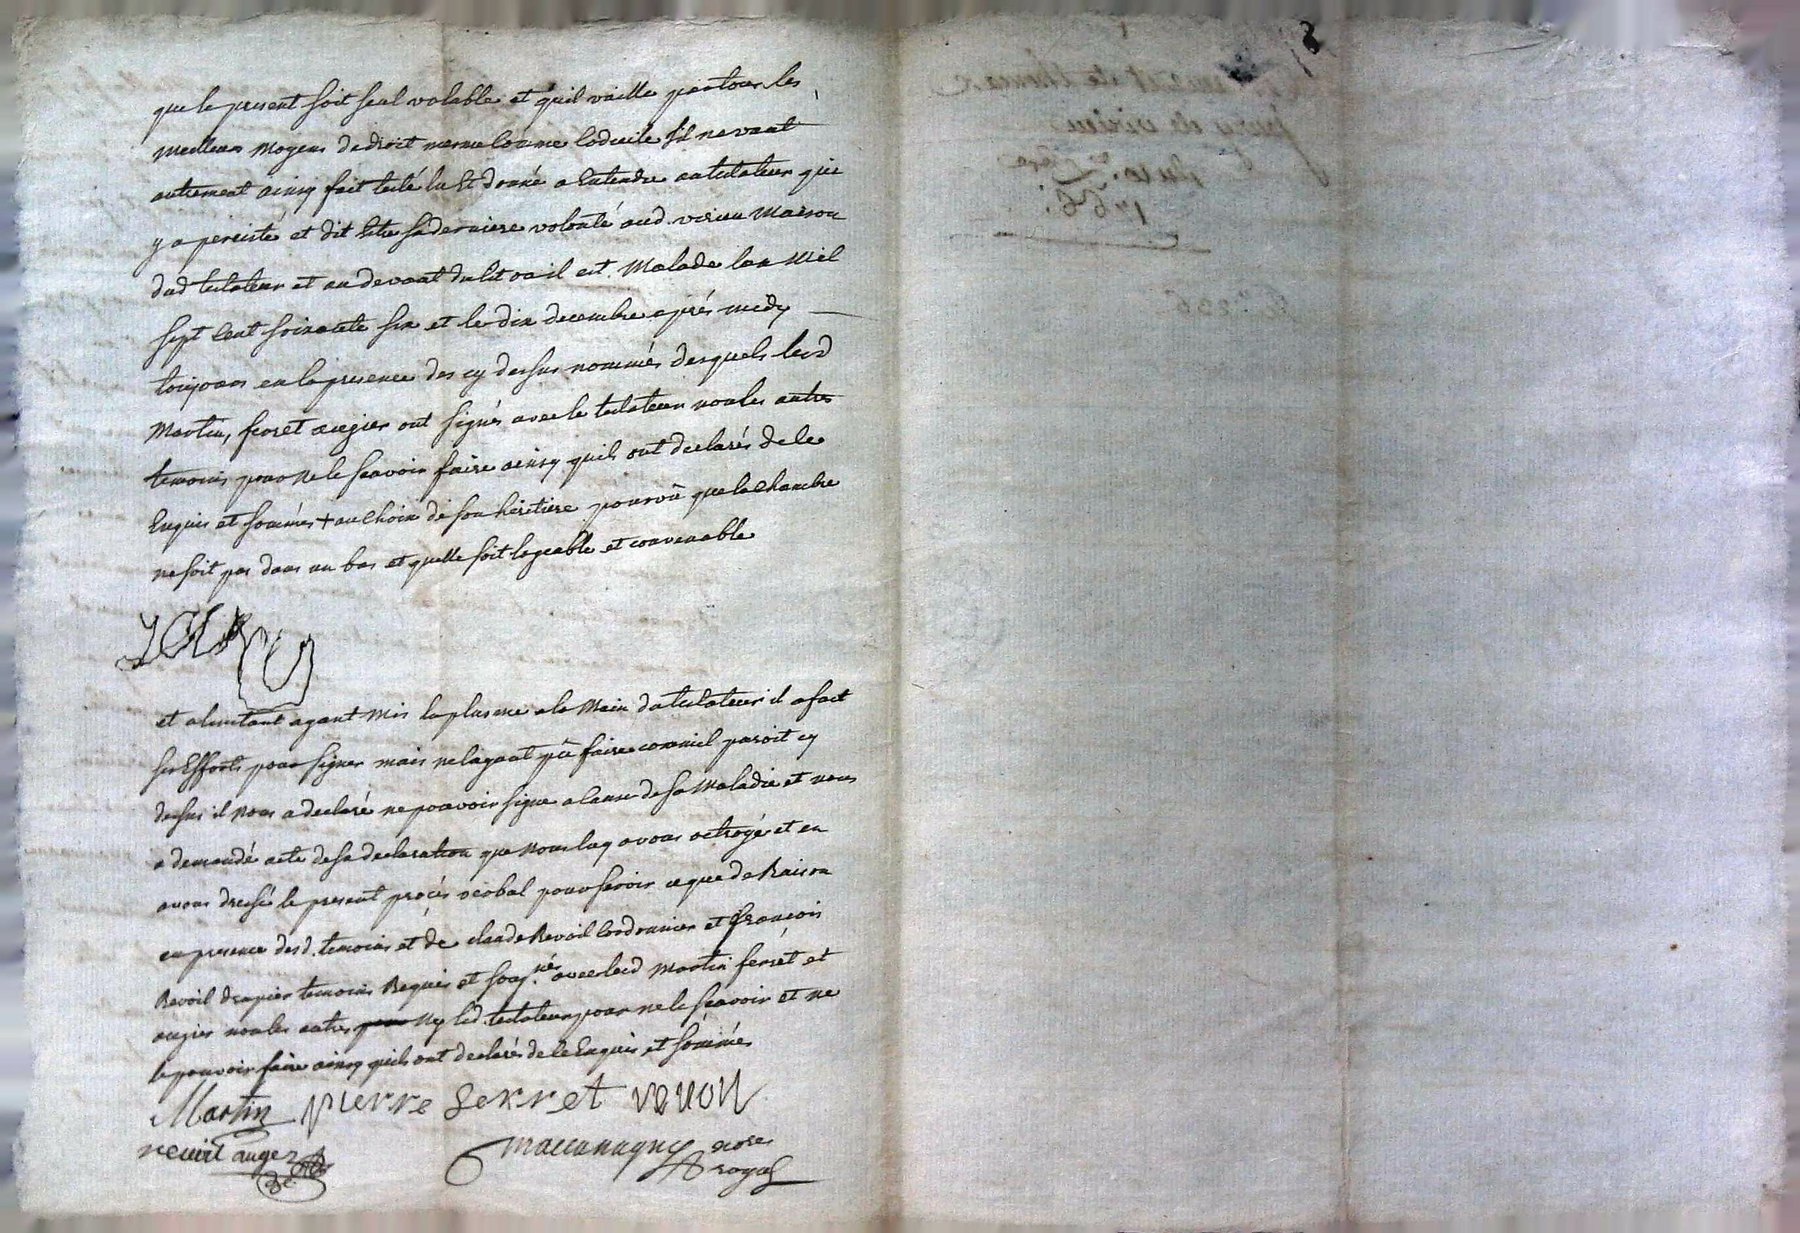 que le present soit seul valable et quil vaille par tous les
meilleurs moyens de droit meme comme codicile sil ne vaut
autrement ainsy fait testé lu et donné a entendre au testateur qui
y a persisté et dit etre sa derniere volonté aud. virieu maison
dud testateur et au devant du lit ou il est malade lan mil
sept cent soixante six et le dix decembre après midy
toujours en la presence des cy dessus nommés desquels lesd
Martin, ferret augier ont signés avec le testateur non les autres
temoins pour ne le scavoir faire ainsy quils ont declarés de ce
enquis et sommés + au choix de son heritiere pourvû que la chambre
ne soit pas dans un bas et quelle soit logeable et convenable
et alinstant ayant mis la plume a la main du testateur il a fait
ses efforts pour signer mais ne layant pû faire comme il paroit cy
dessus il nous a declaré ne pouvoir signe a cause de sa maladie et nous
a demandé acte de sa declaration que nous luy avons octroyé et en
avons dressé le present procès verbal pour servir ce que de Raison
en presence desd. temoins et de claude Revoil cordonnier et françois
Revoil drapier temoins Requis et sousnés avec lesd martin ferret et
augier non les autres ny led. testateur pour ne le scavoir et ne
le pouvoir faire ainsy quils ont declarés de ce enquis et sommés
Martin pierre ferret
auger
nore
royal